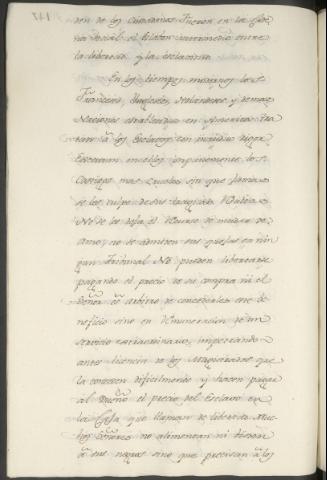 den de los Ciudadanos Fueron en la Cade
na social el Eslabon intermedio entre
la libertad y la esclavitud
En los tiempos modernos los
Franceses, Yngleses, Holandeses y demas
Naciones establecidas en America tra
tan â los Esclavos con inaudito rigor
Executan en ellos impunemente los
Castigos mas crueles sin que jamas
se les culpe de
No se les deja el recurso de mudar de
Amo, no se admiten sus quejas en nin
gun Tribunal No pueden libertarse
pagando el precio de su compra ni el
Dueño es arbitro de concederles este be
neficio sino en remuneracion de un
servicio extraordinario, impetrando
antes licencia de los Magistrados que
la conceden dificilmente y hacen pagar
al Dueño el precio del Esclavo en
la Caja que llaman de libertad Mu
chos Dueños no alimentan ni visten
â sus negros sino que precisan â los